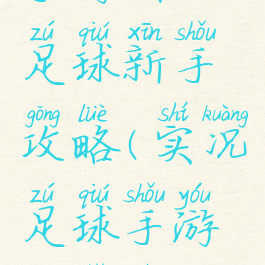 zú qiú xīn shǒu
足球新手
gōng lüè shí kuàng
攻略(实况
zú qiú shǒu yóu
足球手游